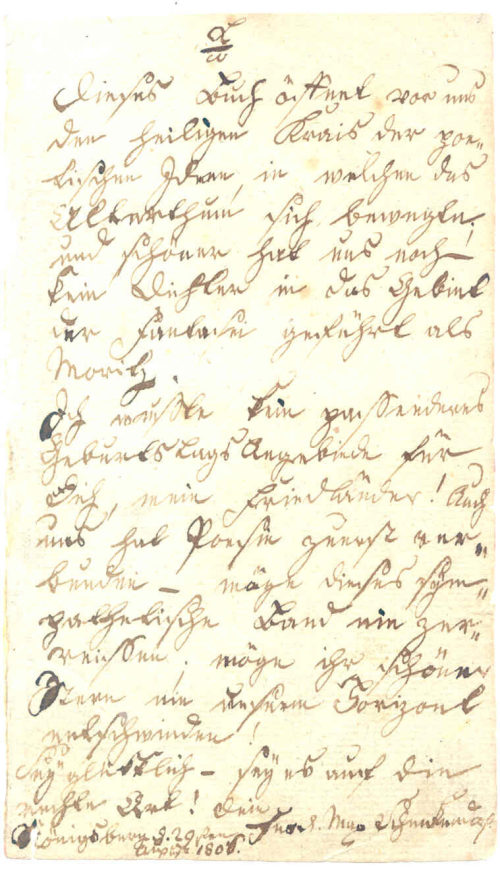 Dieses Buch öffnet vor uns
den heiligen Krais der poe-
tischen Ideen, in welchen das
Alterthum sich bewegte,
und schöner hat uns noch
kein Dichter in das Gebiet
der Fantasei geführt als
Moritz.
Ich wusste kein passenderes
Geburtstags Angebinde für
Dich, mein Friedländer! Auch
uns hat Poesie zuerst ver-
bunden – möge dieses sym-
pathetische Band nie zer-
reissen; möge ihr schöner
Stern nie unserm Horizont
entschwinden!
Sey glücklich – sey es auf die
rechte Art! Dein
Königsberg d. 29sten Ferd. Max Schenkendorf
August 1805.